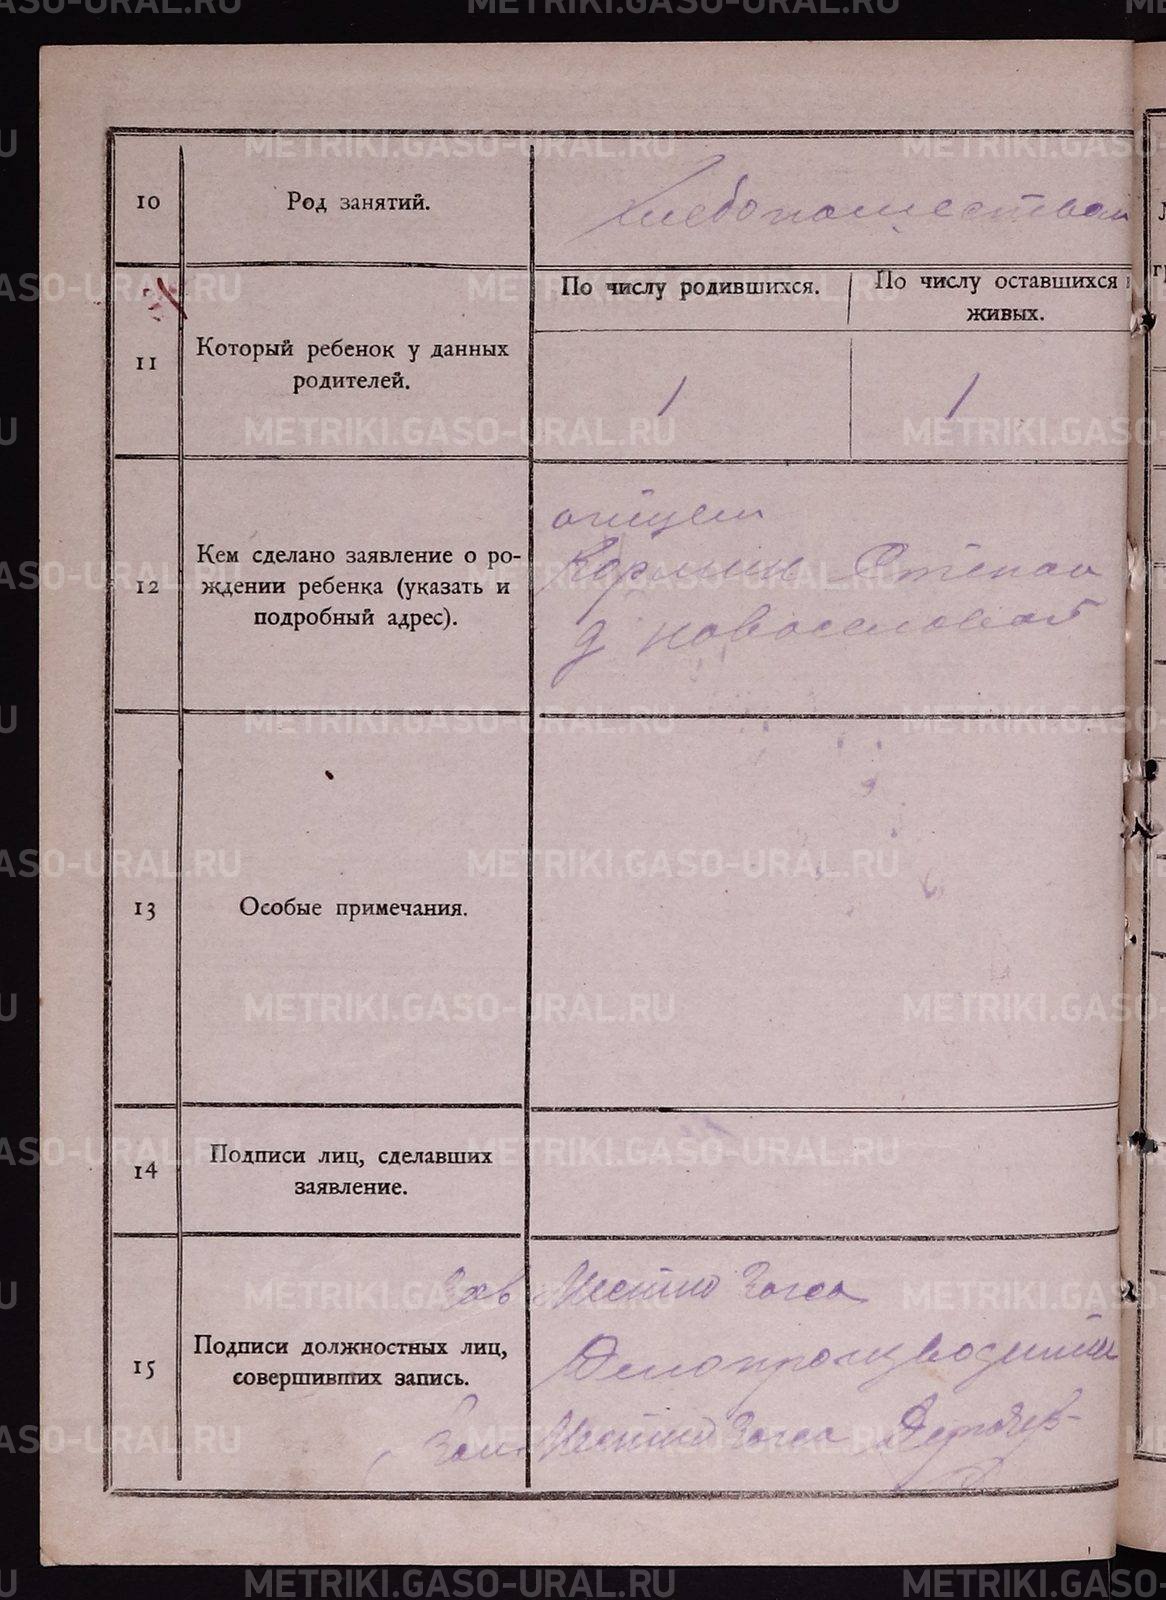 10
Род занятий.
Хлебопашеством
11
Который ребенок у данных
родителей.
По числу родившихся.
По числу оставшихся в
живых.
1
1
12
Кем сделано заявление о ро-
ждении ребенка (указать и
подробный адрес).
отцем
Кормин Степан
д Новоселовской
13
Особые примечания.
14
Подписи лиц, сделавших
заявление.
15
Подписи должностных лиц,
совершивших запись.
Зав Местно Загса
Делопроизводитель
Зам. Местно Загса
METRIKI.GASO-URAL.RU